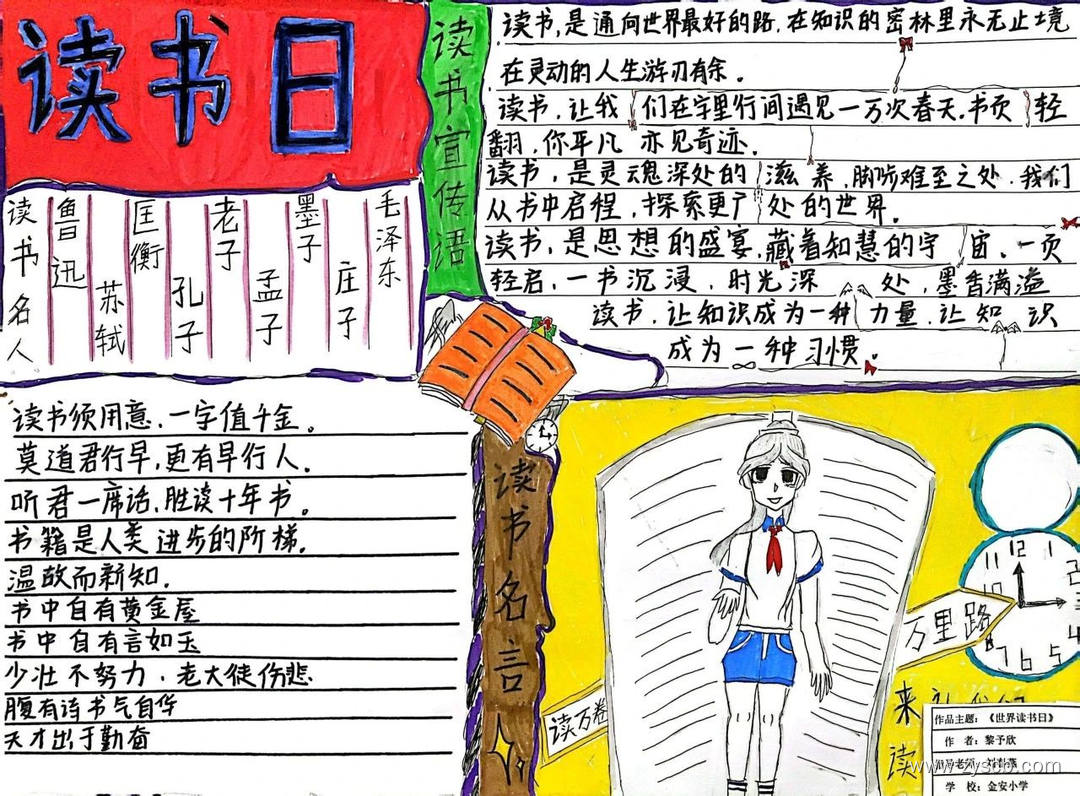 读书日
读书名人
鲁迅
苏轼
匡衡
孔子
老子
孟子
墨子
庄子
毛泽东
读书宣传语
读书,是通向世界最好的路.在知识的密林里永无止境
在灵动的人生游刃有余。
读书,让我们在字里行间遇见一万次春天.书页轻
翻,你平凡亦见奇迹.
读书,是灵魂深处的滋养,脚步难至之处.我们
从书中启程,探索更广处的世界.
读书,是思想的盛宴,藏着知慧的宇宙.一页
轻启,一书沉浸,时光深处,墨香满溢
读书,让知识成为一种力量.让知识
成为一种习惯.
读书须用意.一字值千金。
莫道君行早,更有早行人.
听君一席话,胜读十年书。
书籍是人类进步的阶梯.
温故而新知.
书中自有黄金屋
书中自有言如玉
少壮不努力,老大徒伤悲.
腹有诗书气自华
天才出于勤奋
读书名言
12
1
2
3
4
5
6
7
8
10
11
读万卷
万里路
来
读
作品主题:《世界读书日》
作 者:黎予欣
学 校:金安小学